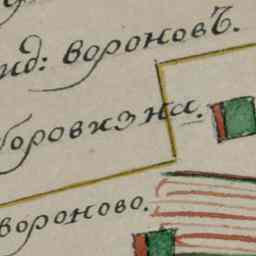 ид: вороновЪ.
боровизна.
вороново.